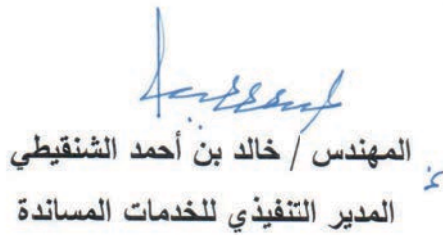 المهندس / خالد بن أحمد الشنقيطي
المدير التنفيذي للخدمات المساندة